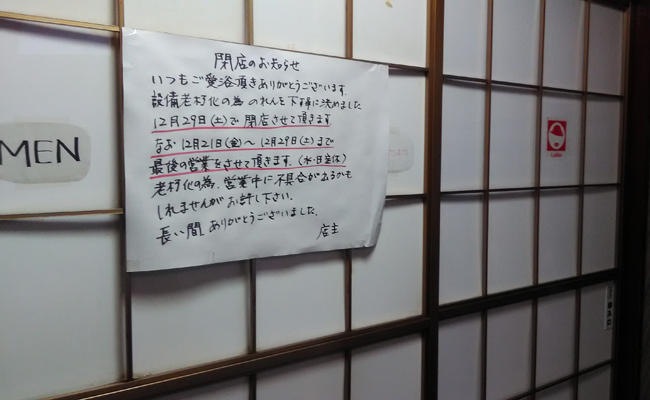 閉店のお知らせ
いつもご愛浴頂きありがとうございます.
設備老朽化の為 のれんを下す事に決めました
12月29日(土)で閉店させて頂きます
なお 12月21日(金)〜12月29日(土)まで
最後の営業をさせて頂きます.(水・日定休)
老朽化の為.営業中に不具合が出るかも
しれませんがお許し下さい.
長い間 ありがとうございました.
店主
MEN